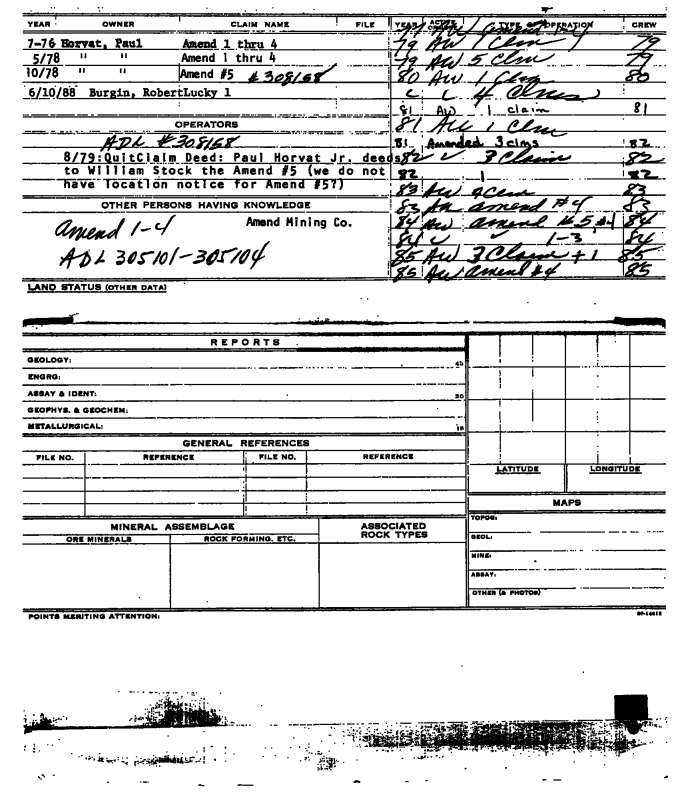 YEAR OWNER CLAIM NAME FILE YEAR ACTIVE TYPE OF OPERATION CREW
7-76 Horvat, Paul Amend 1 thru 4
5/78 " " Amend 1 thru 4
10/78 " " Amend #5 #308168
6/10/88 Burgin, Robert Lucky 1
79 AW 1 Clm 79
79 AW 5 Clm 79
80 AW 1 Clm 80
4 Clms
81 AW 1 claim 81
81 AW 1 Clm
81 Amended 3 clms 82
82 3 Claim 82
82 1 82
83 AW 83
83 amend #4 83
84 AW amend #5 84
84 1-3 84
85 AW 3 Claim + 1 85
85 AW amend #4 85
OPERATORS
ADL #308168
8/79:QuitClaim Deed: Paul Horvat Jr. deeds
to William Stock the Amend #5 (we do not
have location notice for Amend #5?)
OTHER PERSONS HAVING KNOWLEDGE
Amend 1-4 Amend Mining Co.
ADL 305101-305104
LAND STATUS (OTHER DATA)
REPORTS
GEOLOGY:
ENGRG:
ASSAY & IDENT:
GEOPHYS. & GEOCHEM:
METALLURGICAL:
45
30
15
GENERAL REFERENCES
FILE NO. REFERENCE FILE NO. REFERENCE
LATITUDE LONGITUDE
MAPS
TOPOG:
GEOL:
MINE:
ASSAY:
OTHER (& PHOTOS)
MINERAL ASSEMBLAGE
ORE MINERALS ROCK FORMING, ETC.
ASSOCIATED
ROCK TYPES
POINTS MERITING ATTENTION: